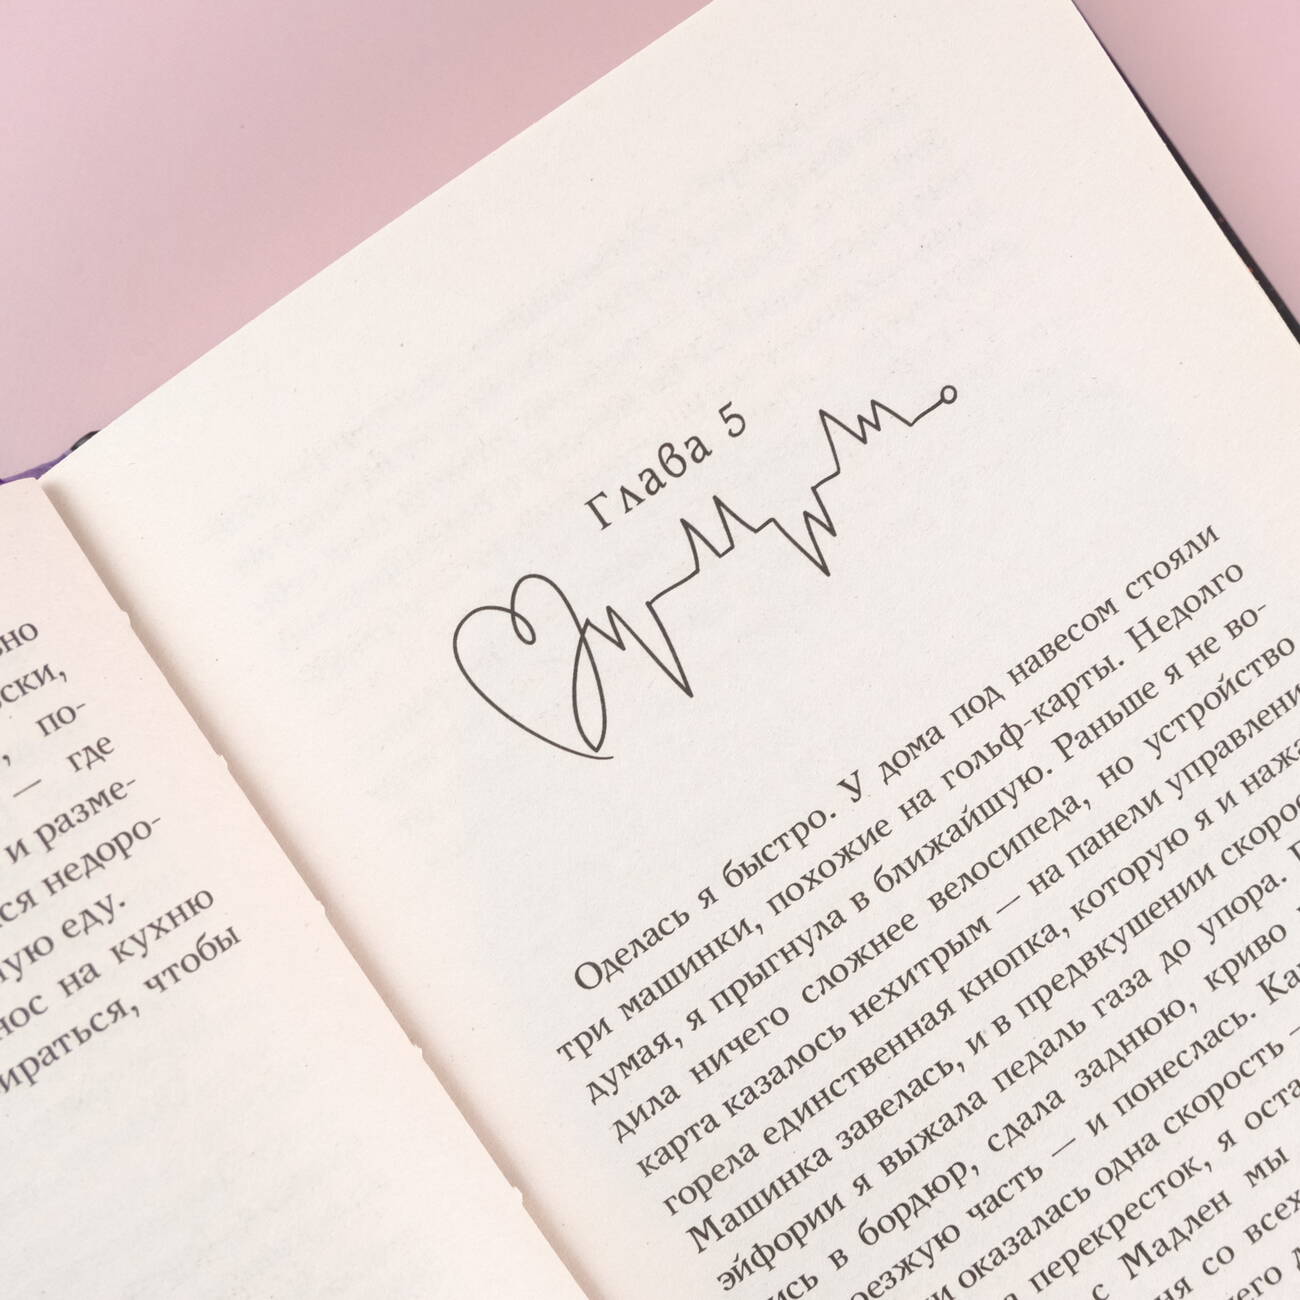 ски,
по-
— где
и разме-
ся недоро-
ую еду.
нос на кухню
ираться, чтобы
Глава 5
Оделась я быстро. У дома под навесом стояли
три машинки, похожие на гольф-карты. Недолго
думая, я прыгнула в ближайшую. Раньше я не во-
дила ничего сложнее велосипеда, но устройство
карта казалось нехитрым — на панели управлени
горела единственная кнопка, которую я и нажа
Машинка завелась, и в предвкушении скорос
эйфории я выжала педаль газа до упора.
ись в бордюр, сдала заднюю, криво
оезжую часть — и понеслась. Ка
и оказалась одна скорость —
перекресток, я оста
с Мадлен мы
ня со всех